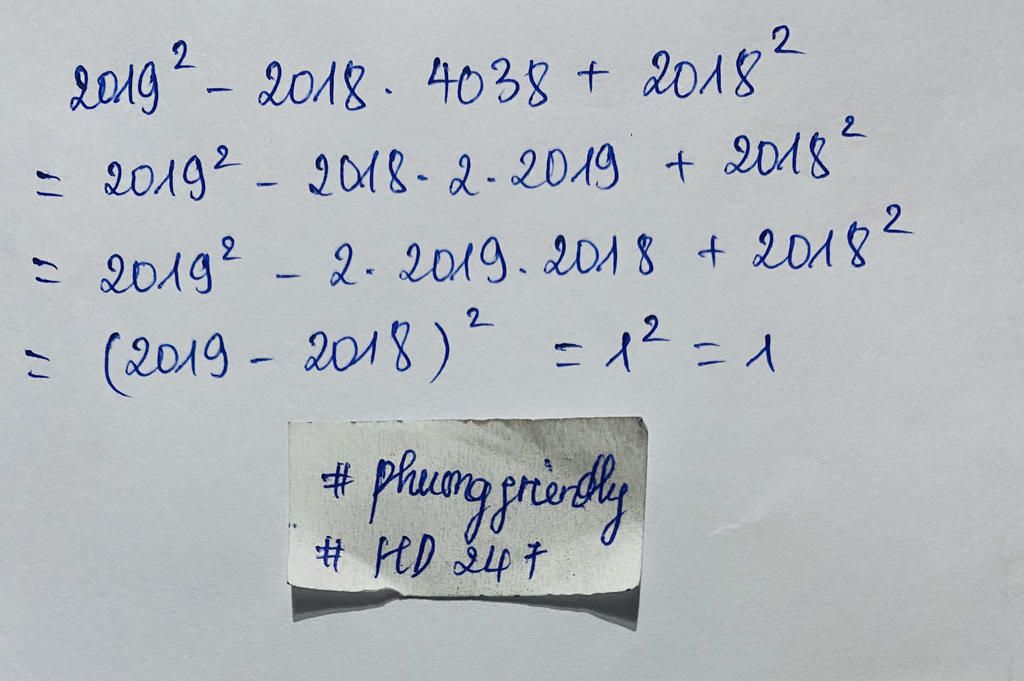 2019² - 2018 . 4038 + 2018²
= 2019² - 2018 . 2 . 2019 + 2018²
= 2019² - 2 . 2019 . 2018 + 2018²
= (2019 - 2018)² = 1² = 1
# phuonggriendly
# HD 247